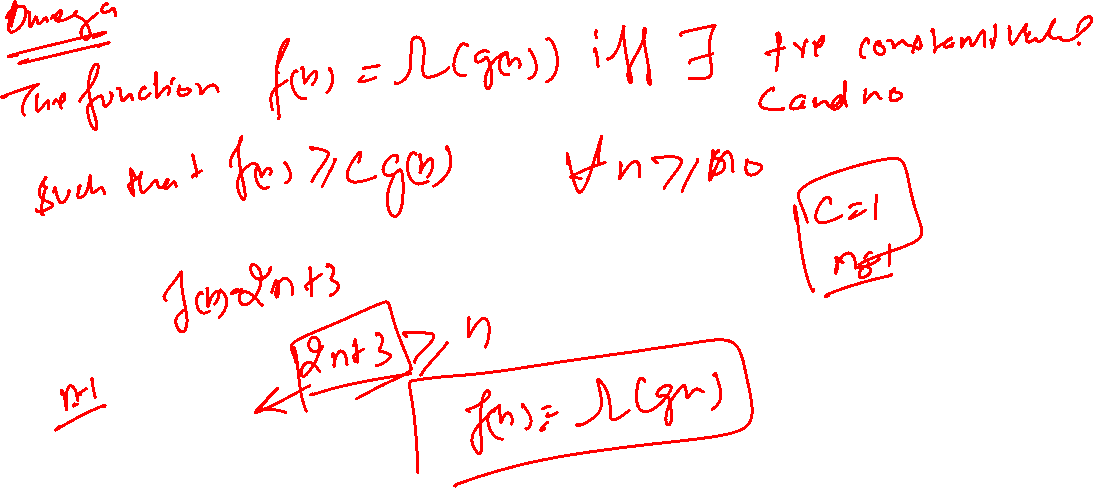 Omega
The function f(n) = Ω(g(n)) iff ∃ +ve constant value
C and n0
such that f(n) ≥ c g(n) ∀ n ≥ n0
C=1
n0=1
f(n)=2n+3
2n+3 ≥ n
n=1
f(n) = Ω(gn)